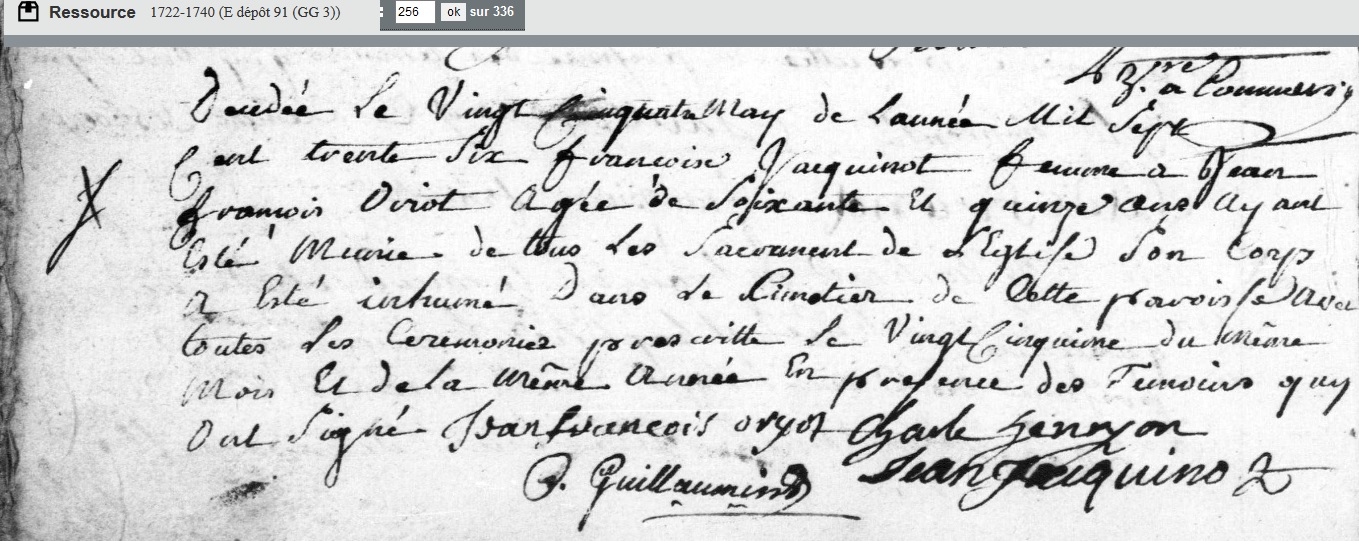 Ressource 1722-1740 (E dépôt 91 (GG 3)) : 256 ok sur 336
Decedée Le Vingt May de Lannée Mil Sept
Cent trente Six francoise Jacquinot femme a Jean
francois Oriot Agée de Soixante Et quinze ans Ayant
Esté Munie de tous Les Sacrement de L'Eglise Son Corp
a Esté inhumé Dans Le Cimetier de Cette paroisse Avec
toutes Les Ceremonies prescritte Le Vingt Cinquieme du même
Mois Et de la même Année En presence des Temoins quy
Ont Signé Jean francois oryot Charle henryon
P. Guillaumin Jean Jacquino